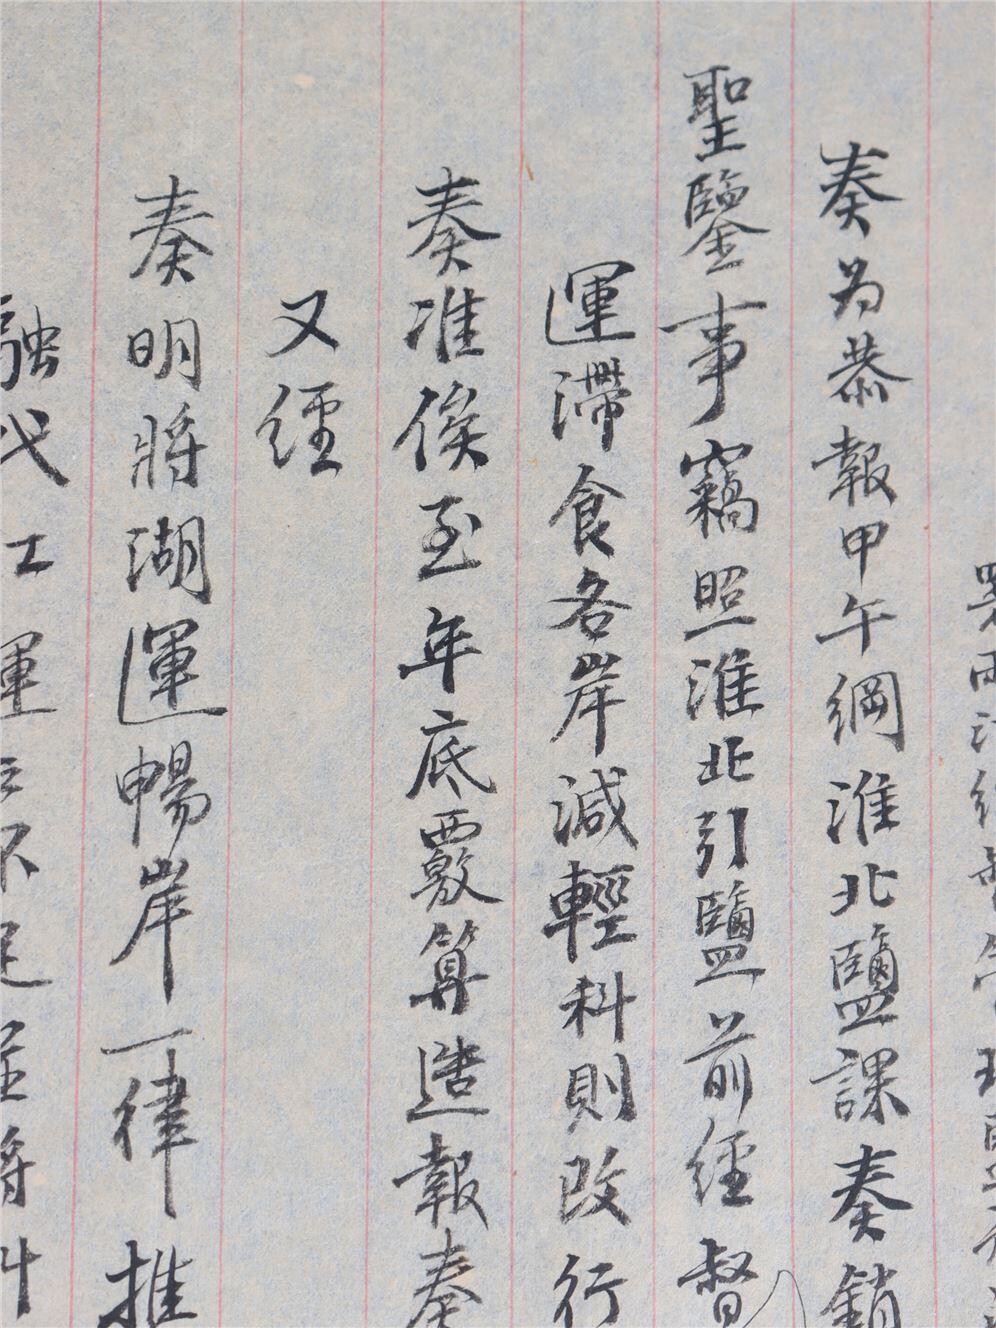 奏為恭報甲午綱淮北鹽課奏銷
聖鑒事竊照淮北引鹽前經督
運滯食各岸減輕科則改行
奏准俟至年底覈算造報奏
又經
奏明將湖運暢岸一律推
融代